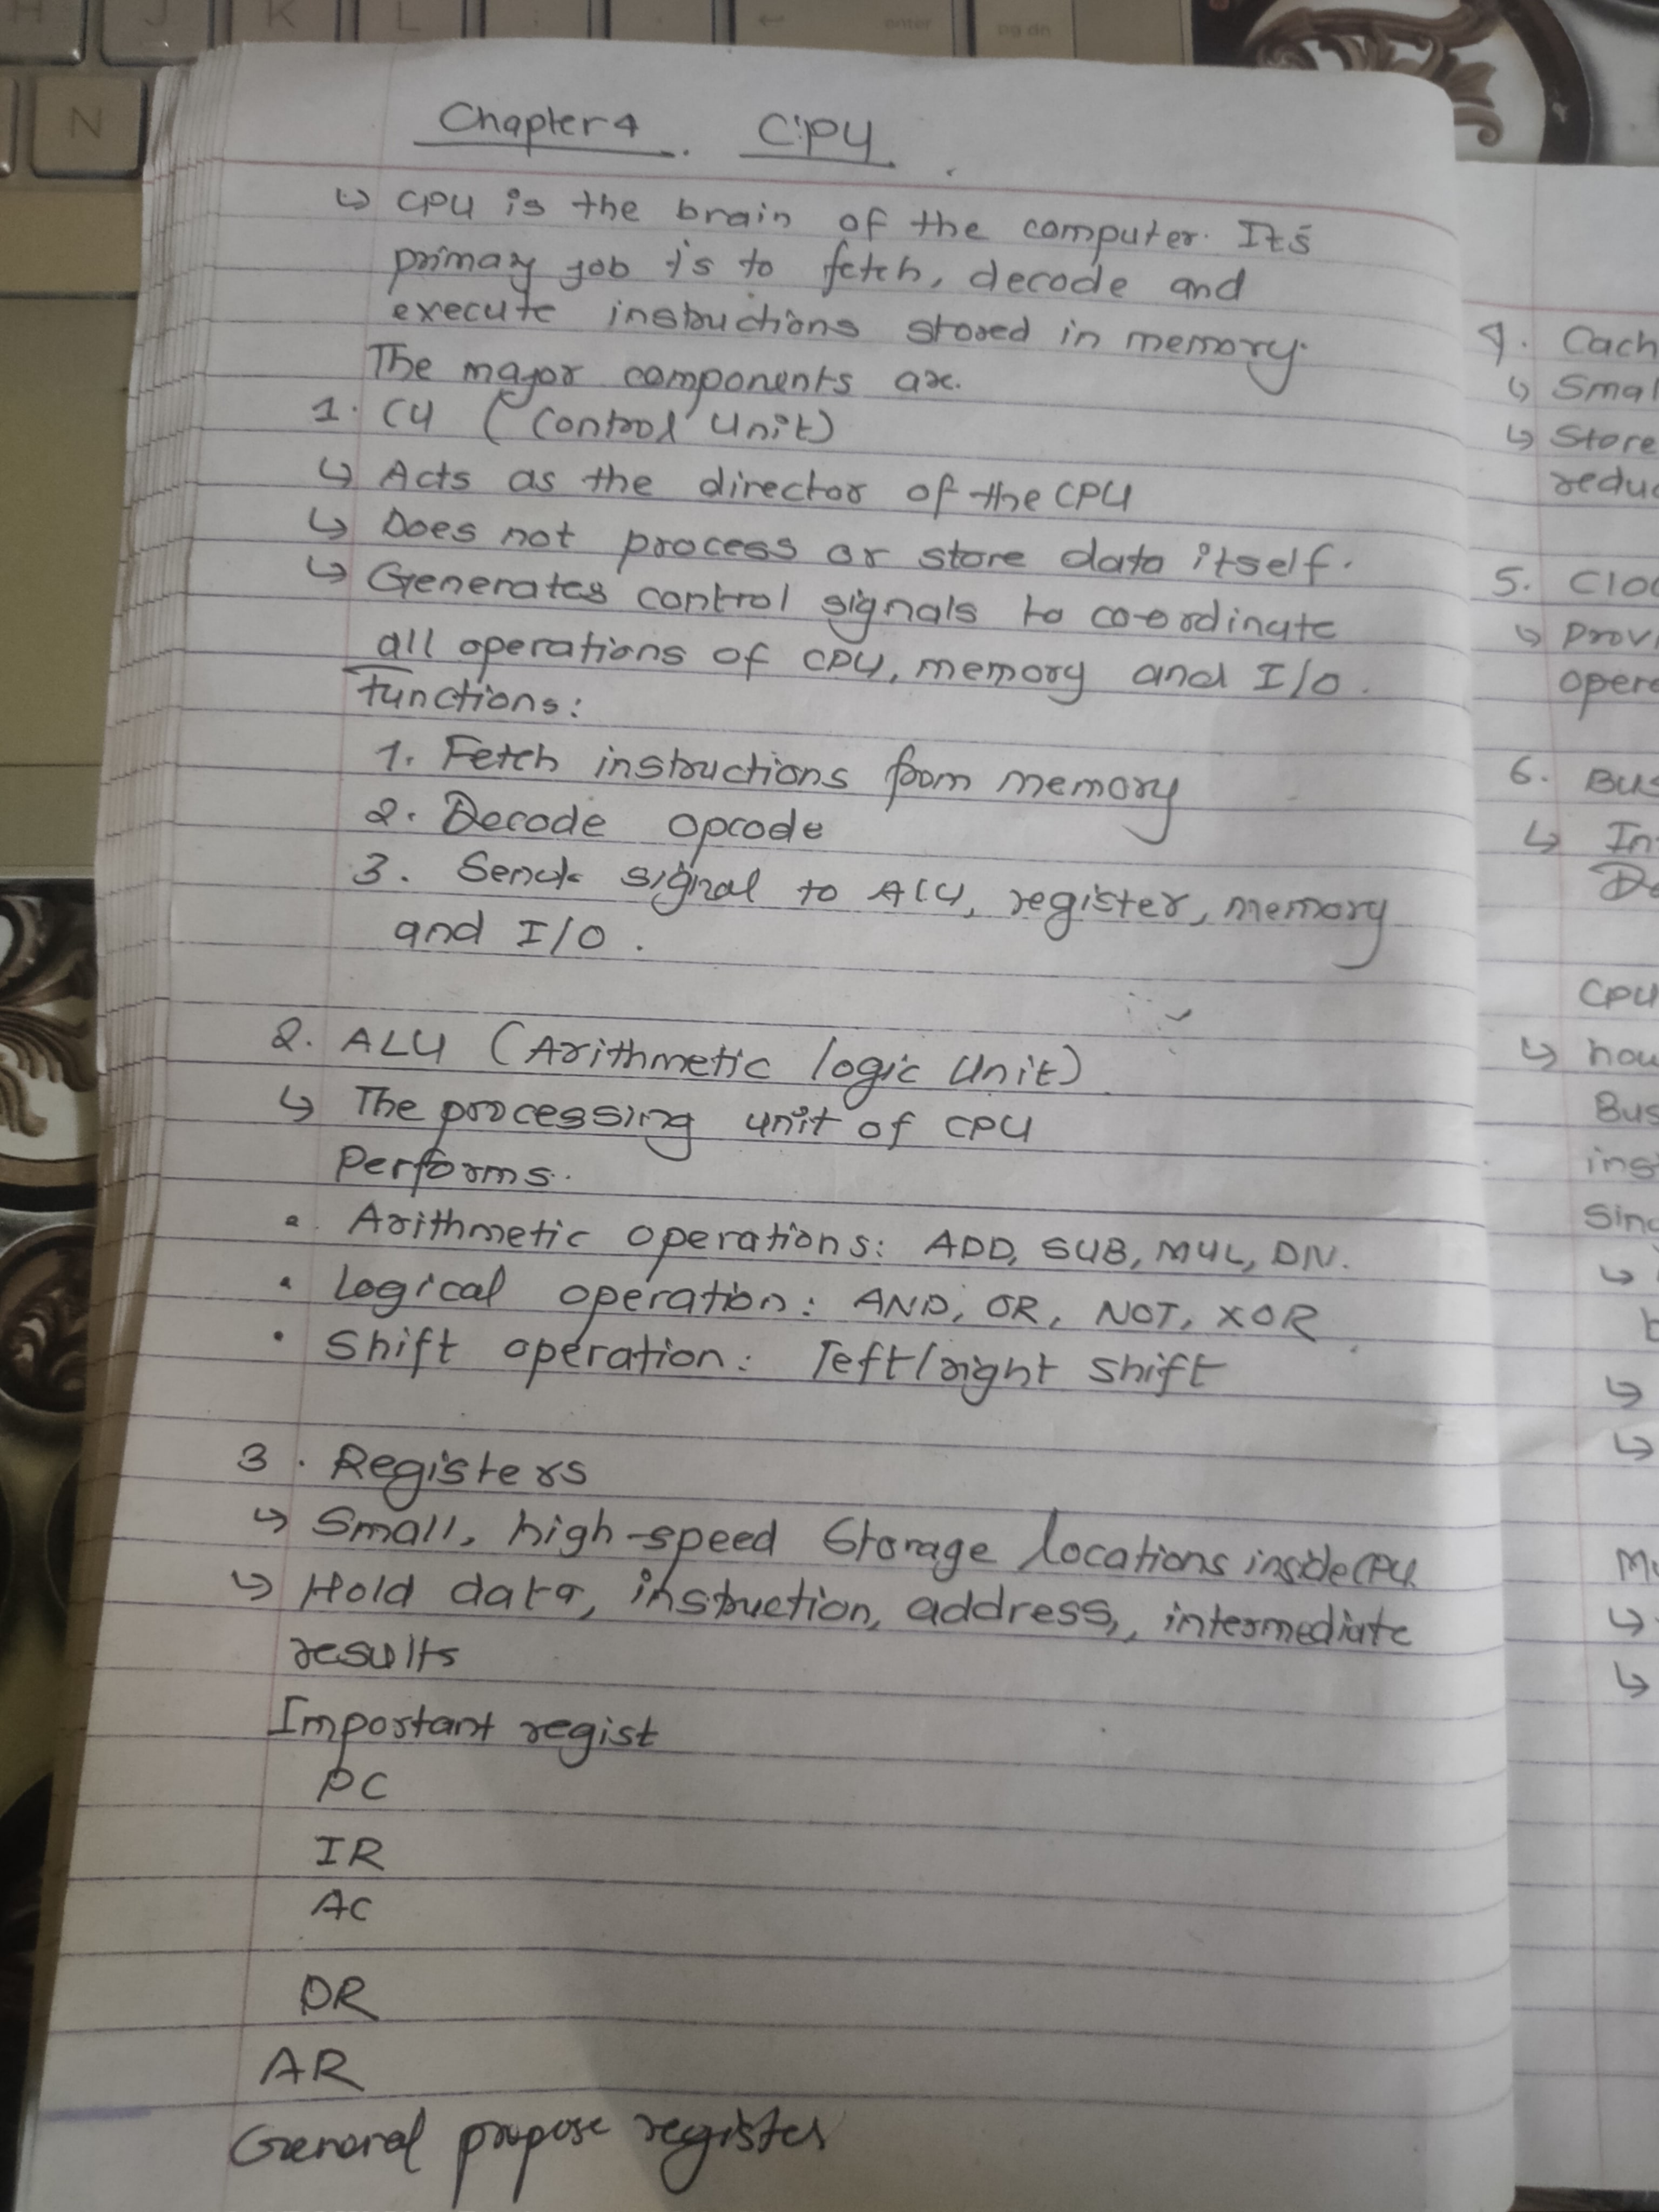 Chapter 4. CPU.
↳ CPU is the brain of the computer. Its
primary job is to fetch, decode and
execute instructions stored in memory.
The major components are.
1. CU (Control Unit)
↳ Acts as the director of the CPU
↳ Does not process or store data itself.
↳ Generates control signals to co-ordinate
all operations of CPU, memory and I/O.
functions:
1. Fetch instructions from memory
2. Decode opcode
3. Sends signal to ALU, register, memory
and I/O.
2. ALU (Arithmetic logic Unit)
↳ The processing unit of CPU
Performs.
• Arithmetic operations: ADD, SUB, MUL, DIV.
• Logical operation: AND, OR, NOT, XOR
• Shift operation: left/right shift
3. Registers
↳ Small, high-speed Storage locations inside CPU
↳ Hold data, instruction, address, intermediate
results
Important regist
PC
IR
AC
DR
AR
General propose register
4. Cach
↳ Smal
↳ Store
reduc
5. Cloc
↳ Provi
opera
6. Bus
↳ In
CPU
↳ how
Bus
ins
Sing
↳
↳
↳
↳
↳
H
J
K
L
;
'
enter
pg dn
N